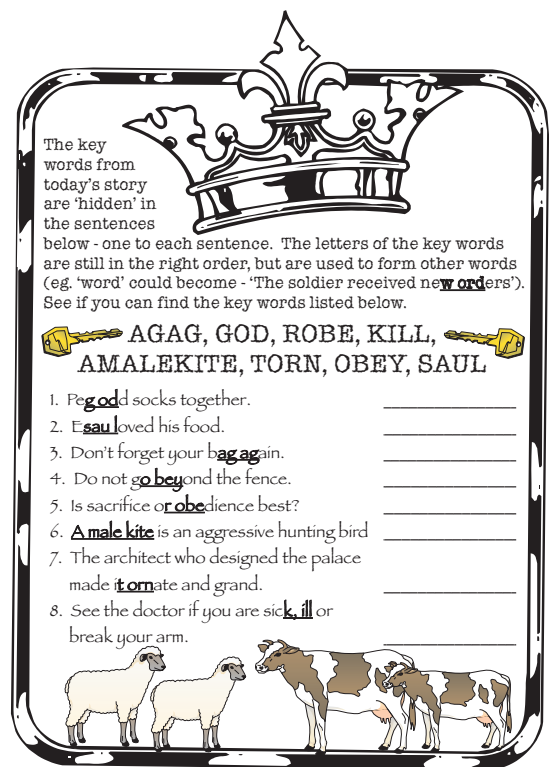 The key
words from
today's story
are 'hidden' in
the sentences
below - one to each sentence. The letters of the key words
are still in the right order, but are used to form other words
(eg. 'word' could become - 'The soldier received new orders').
See if you can find the key words listed below.
AGAG, GOD, ROBE, KILL,
AMALEKITE, TORN, OBEY, SAUL
1. Peg odd socks together.
2. Esau loved his food.
3. Don't forget your bag again.
4. Do not go beyond the fence.
5. Is sacrifice or obedience best?
6. A male kite is an aggressive hunting bird
7. The architect who designed the palace
made it ornate and grand.
8. See the doctor if you are sick, ill or
break your arm.